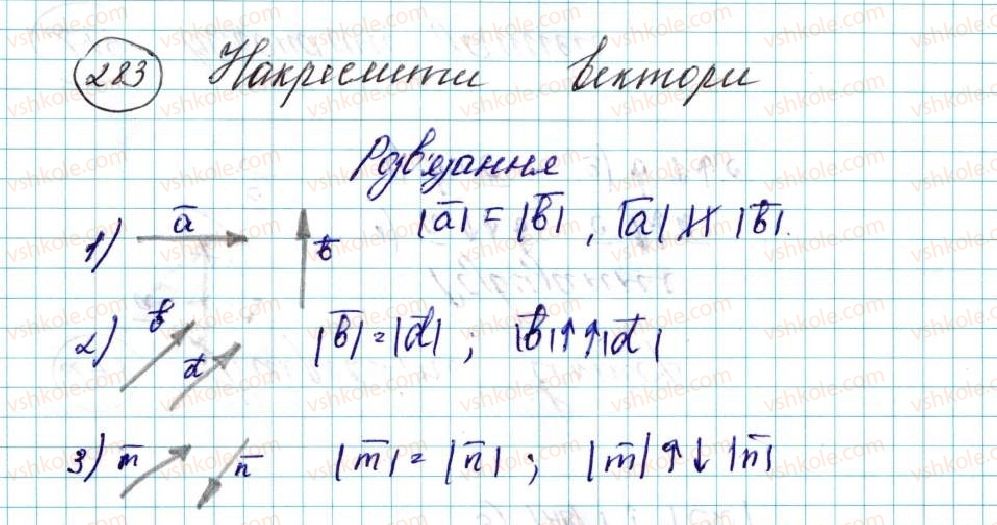 283 Накреслити вектори
Розв'язання
1) a̅ b̅ |a̅| = |b̅|, |a̅| ∦ |b̅|.
2) b̅ d̅ |b̅| = |d̅|; |b̅| ↑↑ |d̅|
3) m̅ n̅ |m̅| = |n̅|; |m̅| ↑↓ |n̅|